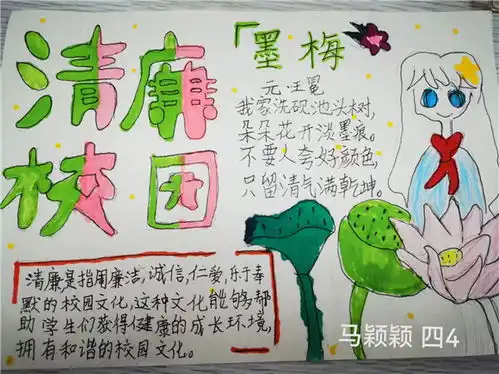 清廉
校园
「墨梅
元·王冕
我家洗砚池头树,
朵朵花开淡墨痕。
不要人夸好颜色,
只留清气满乾坤。
清廉是指用廉洁,诚信,仁爱,乐于奉
默的校园文化,这种文化能够帮
助学生们获得健康的成长环境,
拥有和谐的校园文化。
马颖颖 四4